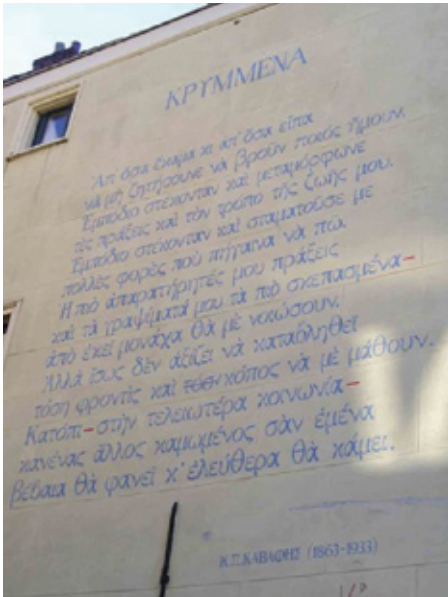 ΚΡΥΜΜΕΝΑ
Ἀπ' ὅσα ἔκαμα κι ἀπ' ὅσα εἶπα
νὰ μὴ ζητήσουνε νὰ βροῦν ποιὸς ἤμουν.
Ἐμπόδιο στέκονταν καὶ μεταμόρφωνε
τὲς πράξεις καὶ τὸν τρόπο τῆς ζωῆς μου.
Ἐμπόδιο στέκονταν καὶ σταματοῦσε με
πολλὲς φορὲς ποὺ πήγαινα νὰ πῶ.
Ἡ πιὸ ἀπαρατήρητές μου πράξεις
καὶ τὰ γραψίματά μου τὰ πιὸ σκεπασμένα–
ἀπὸ ἐκεῖ μονάχα θὰ μὲ νοιώσουν.
Ἀλλὰ ἴσως δὲν ἀξίζει νὰ καταβληθεῖ
τόση φροντὶς καὶ τόσος κόπος νὰ μὲ μάθουν.
Κατόπι–στὴν τελειωτέρα κοινωνία–
κανένας ἄλλος καμωμένος σὰν ἐμένα
βέβαια θὰ φανεῖ κ' ἐλεύθερα θὰ κάμει.
Κ.Π.ΚΑΒΑΦΗΣ (1863-1933)